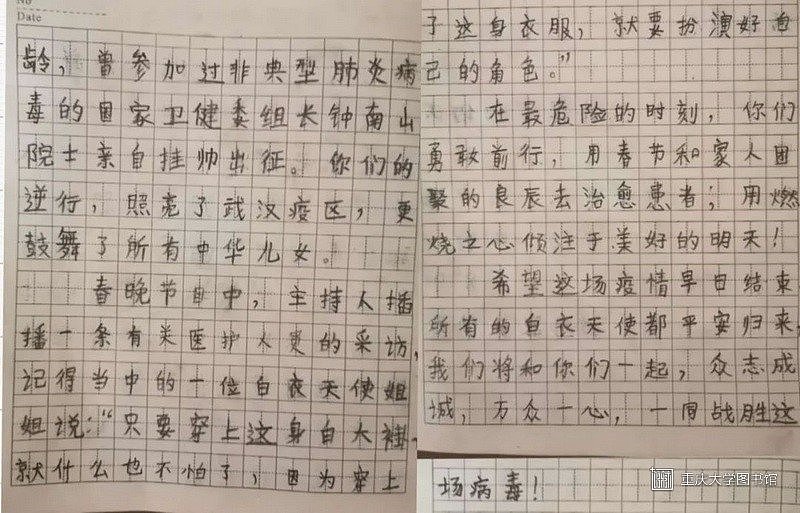 No
Date
龄，曾参加过非典型肺炎病
毒的国家卫健委组长钟南山
院士亲自挂帅出征。你们的
逆行，照亮了武汉疫区，更
鼓舞了所有中华儿女。
春晚节目中，主持人播
播一条有关医护人员的采访，
记得当中的一位白衣天使姐
姐说：“只要穿上这身白大褂，
就什么也不怕了，因为穿上
了这身衣服，就要扮演好自
己的角色。”
在最危险的时刻，你们
勇敢前行，用春节和家人团
聚的良辰去治愈患者；用燃
烧之心倾注于美好的明天！
希望这场疫情早日结束
所有的白衣天使都平安归来，
我们将和你们一起，众志成
城，万众一心，一同战胜这
场病毒！
重庆大学图书馆